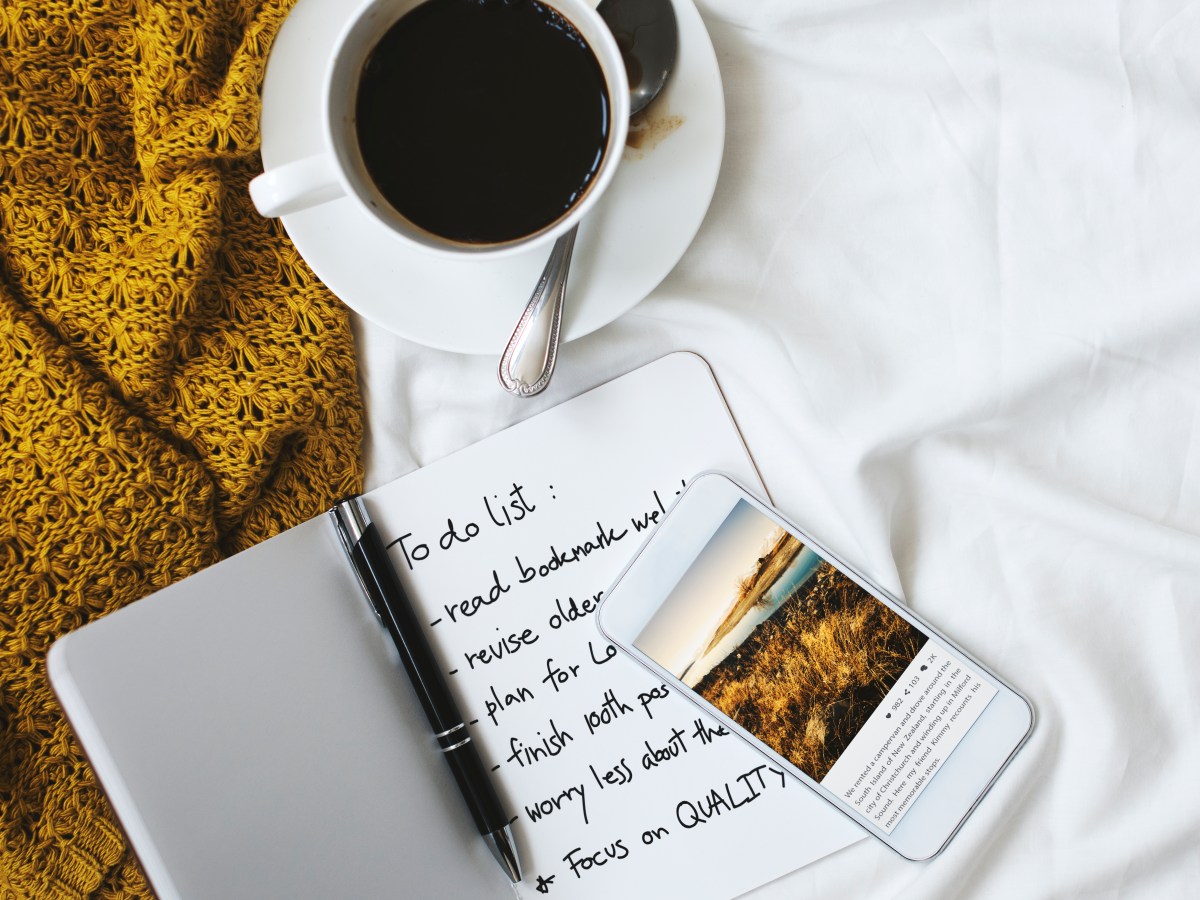 To do list :
- read bookmark
- revise older
- plan for
- finish 100th
- worry less about the
* Focus on QUALITY
982 103 2K
We rented a campervan and drove around the
South Island of New Zealand, starting in the
city of Christchurch and winding up in Milford
Sound. Here my friend Kimmy recounts his
most memorable stops.